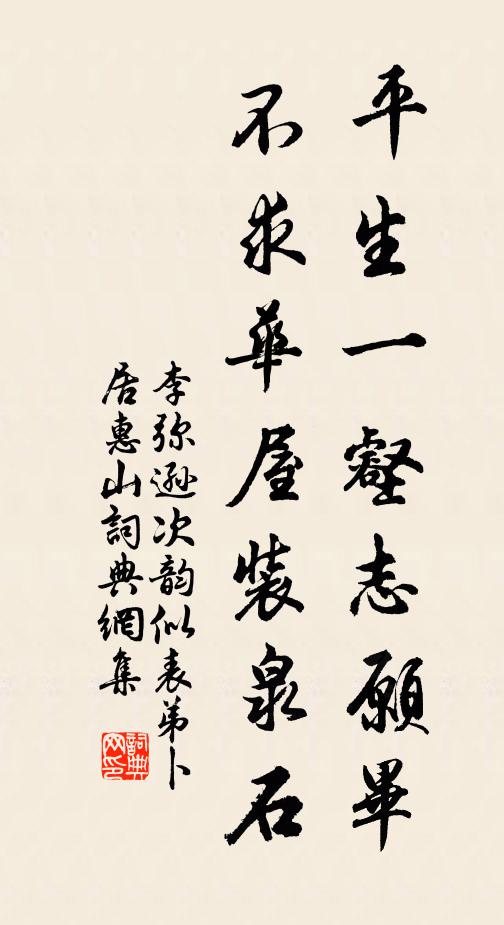 平生一壑志願畢
不求華屋裝泉石
李弥遜次韵似表弟卜
居惠山詞典網集
詞典网印